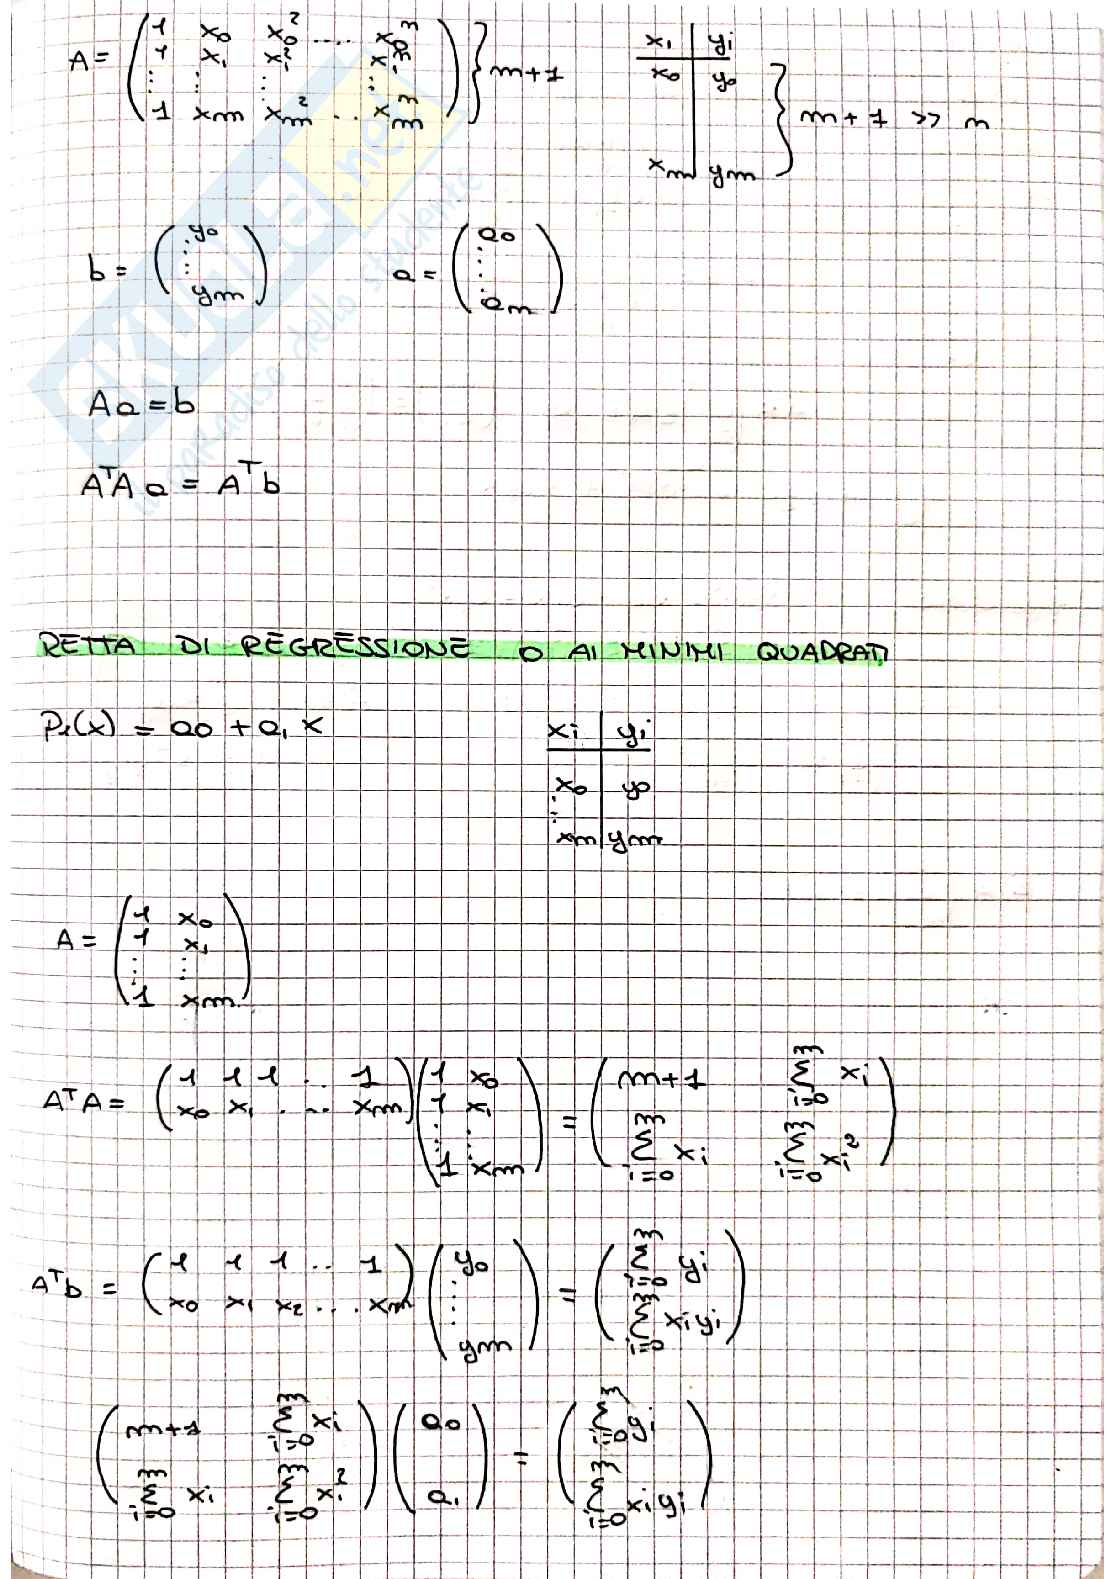 A = ( 1 x₀ x₀² .... x₀ⁿ } m+1
1 x₁ x₁² x₁ⁿ
... ... ... ...
1 xm xm² .. xmⁿ )
xᵢ | yᵢ
x₀ | y₀
xm | ym } m+1 >> n
b = ( y₀ ... ym ) a = ( a₀ ... an )
Aa = b
AᵀA a = Aᵀb
RETTA DI REGRESSIONE O AI MINIMI QUADRATI
P₁(x) = a₀ + a₁ x
xᵢ | yᵢ
x₀ | y₀
:
xm | ym
A = ( 1 x₀
1 x₁
... ...
1 xm )
AᵀA = ( 1 1 1 .. 1 ; x₀ x₁ . ... xm ) ( 1 x₀ ; 1 x₁ ; ... ... ; 1 xm ) = ( m+1 Σᵢ₌₀ᵐ xᵢ ; Σᵢ₌₀ᵐ xᵢ Σᵢ₌₀ᵐ xᵢ² )
Aᵀb = ( 1 1 1 .. 1 ; x₀ x₁ x₂ .... xm ) ( y₀ ... ym ) = ( Σᵢ₌₀ᵐ yᵢ ; Σᵢ₌₀ᵐ xᵢ yᵢ )
( m+1 Σᵢ₌₀ᵐ xᵢ ; Σᵢ₌₀ᵐ xᵢ Σᵢ₌₀ᵐ xᵢ² ) ( a₀ ; a₁ ) = ( Σᵢ₌₀ᵐ yᵢ ; Σᵢ₌₀ᵐ xᵢ yᵢ )
skuola.net
il paradiso dello studente